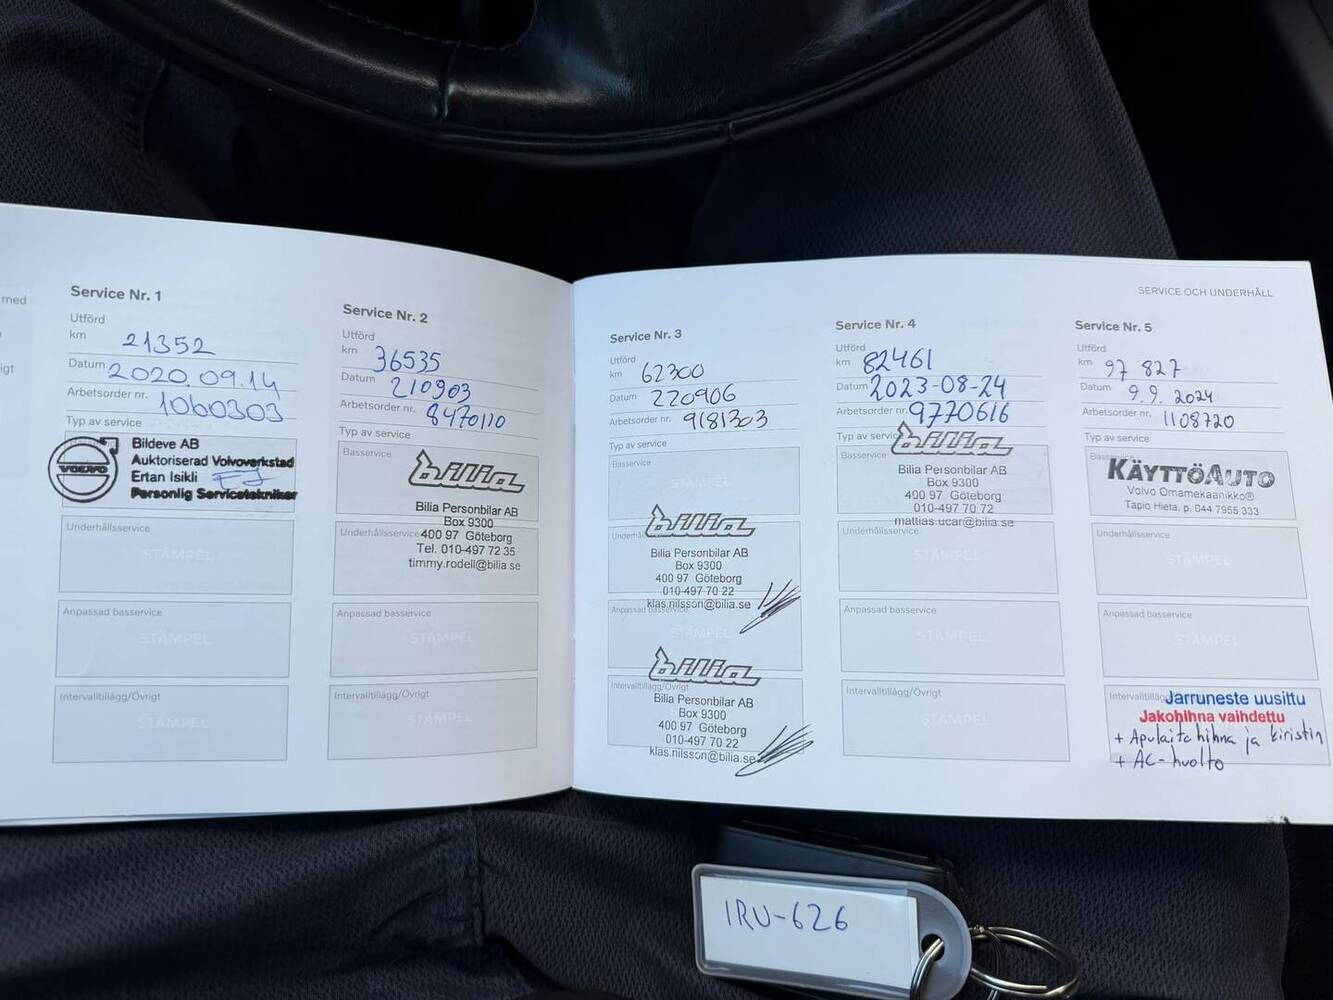 med
igt
Service Nr. 1
Utförd
km 21352
Datum 2020.09.14
Arbetsorder nr. 1060303
Typ av service
VOLVO
Bildeve AB
Auktoriserad Volvoverkstad
Ertan Isikli
Personlig Servicetekniker
Underhållsservice
STÄMPEL
Anpassad basservice
STÄMPEL
Intervalltillägg/Övrigt
STÄMPEL
Service Nr. 2
Utförd
km 36535
Datum 210903
Arbetsorder nr. 8470110
Typ av service
Basservice
bilia
Bilia Personbilar AB
Box 9300
Underhållsservice
400 97 Göteborg
Tel. 010-497 72 35
timmy.rodell@bilia.se
Anpassad basservice
STÄMPEL
Intervalltillägg/Övrigt
STÄMPEL
SERVICE OCH UNDERHÅLL
Service Nr. 3
Utförd
km 62300
Datum 220906
Arbetsorder nr. 9181303
Typ av service
Basservice
STÄMPEL
bilia
Bilia Personbilar AB
Box 9300
400 97 Göteborg
010-497 70 22
klas.nilsson@bilia.se
Anpassad basservice
STÄMPEL
bilia
Intervalltillägg/Övrigt
Bilia Personbilar AB
Box 9300
400 97 Göteborg
010-497 70 22
klas.nilsson@bilia.se
Service Nr. 4
Utförd
km 82461
Datum 2023-08-24
Arbetsorder nr. 9770616
Typ av service
bilia
Bilia Personbilar AB
Box 9300
400 97 Göteborg
010-497 70 72
mattias.ucar@bilia.se
Underhållsservice
STÄMPEL
Anpassad basservice
STÄMPEL
Intervalltillägg/Övrigt
STÄMPEL
Service Nr. 5
Utförd
km 97 827
Datum 9.9.2024
Arbetsorder nr. 1108720
Typ av service
KÄYTTÖAUTO
Volvo Omamekaanikko®
Tapio Hieta, p. 044 7955 333
Underhållsservice
STÄMPEL
Anpassad basservice
STÄMPEL
Jarruneste uusittu
Jakohihna vaihdettu
+ Apulaitehihna ja kiristin
+ AC-huolto
IRU-626